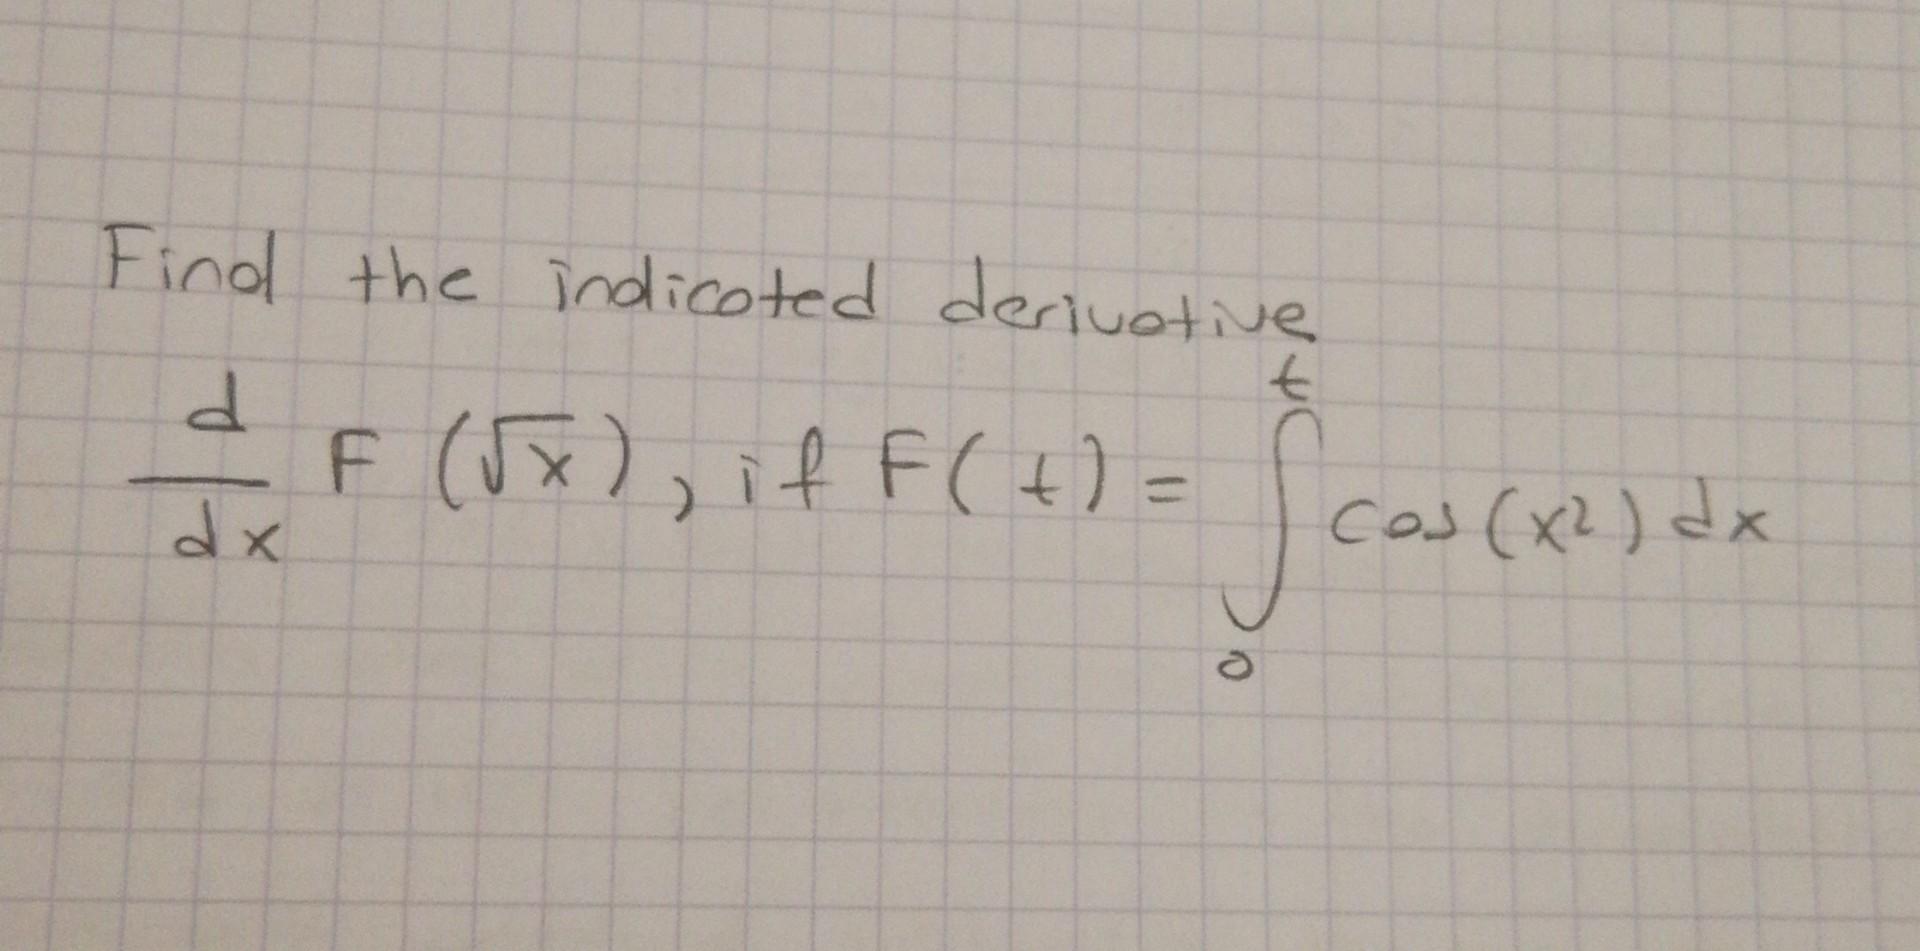 Find the indicated derivative
d/dx F(√x), if F(t) = ∫₀ᵗ cos(x²) dx